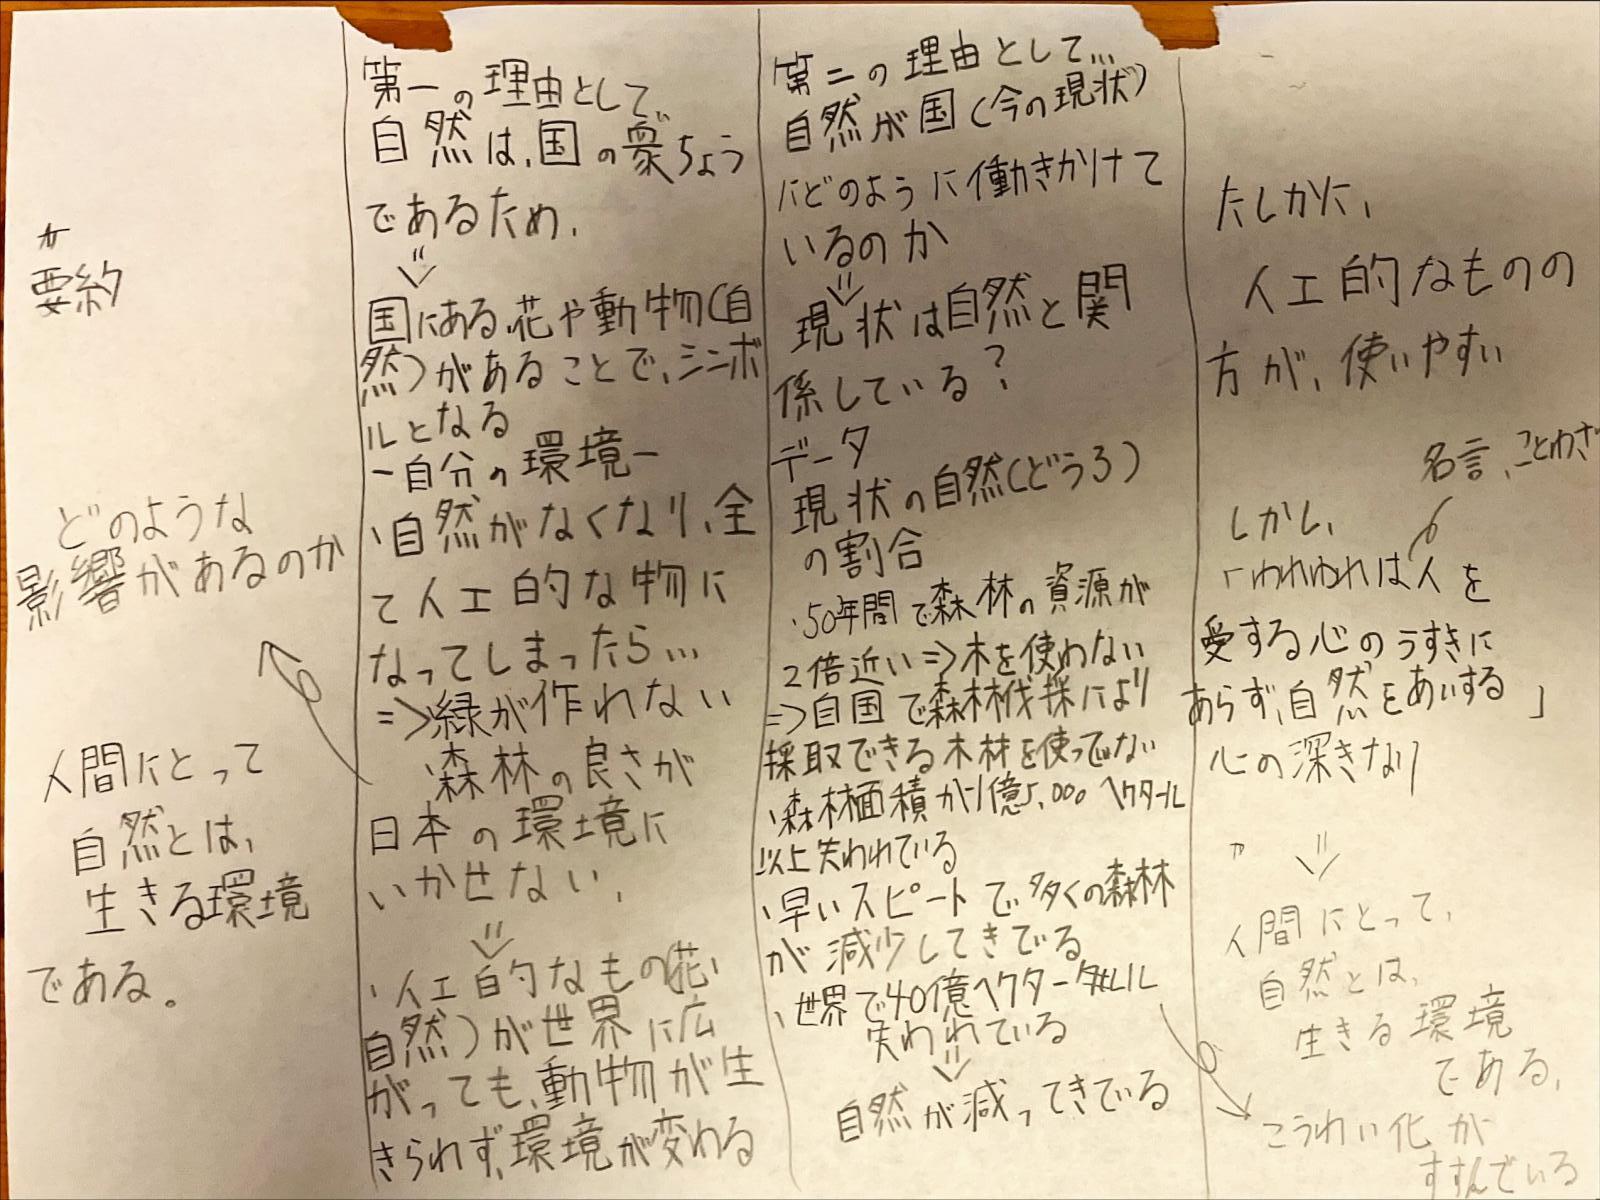 要約
どのような
影響があるのか
人間にとって
自然とは、
生きる環境
である。
第一の理由として、
自然は、国の象ちょう
であるため、
国にある花や動物(自
然)があることで、シンボ
ルとなる
ー自分の環境ー
・自然がなくなり、全
て人工的な物に
なってしまったら…
=>緑が作れない
・森林の良さが
日本の環境に
いかせない、
・人工的なもの(花、
自然)が世界に広
がっても、動物が生
きられず、環境が変わる
第二の理由として…
自然が国(今の現状)
にどのように働きかけて
いるのか
現状は自然と関
係している?
データ
現状の自然(どうろ)
の割合
・50年間で森林の資源が
2倍近い=>木を使わない
=>自国で森林伐採により
採取できる木材を使ってない
・森林面積が1億5,000ヘクタール
以上失われている
・早いスピードで多くの森林
が減少してきている
・世界で40億ヘクタール
失われている
自然が減ってきている
たしかに、
人工的なものの
方が、使いやすい
名言、ことわざ
しかし、
「われわれは人を
愛する心のうすきに
あらず、自然をあいする
心の深きなり」
人間にとって、
自然とは、
生きる環境
である、
こうれい化が
すすんでいる